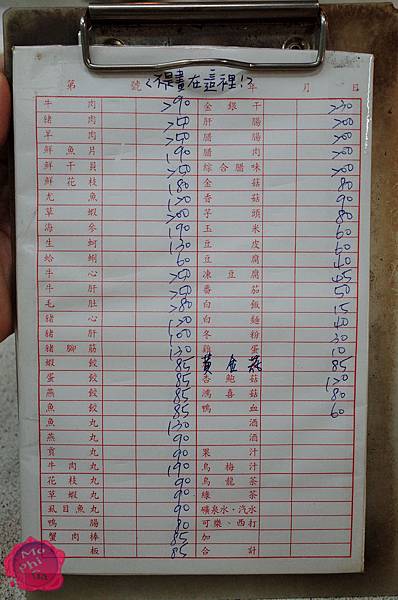 <不是畫在這裡!>
第 號 年 月 日
牛肉 290 金銀干 230
豬肉 250 肝腸 200
羊肉 250 膶腸 200
鮮魚片 190 臘肉 200
鮮干貝 250 綜合臘味 200
鮮花枝 180 金菇 80
尤魚 120 香菇 90
草蝦 200 芋頭 80
海參 190 玉米 60
生蚵 130 豆皮 50
蛤蜊 60 豆腐 40
牛心 250 凍豆腐 45
牛肝 250 番茄 50
毛肚 280 白飯 15
豬心 120 白麵 40
豬肝 100 冬粉 30
豬腳筋 130 雞蛋 10
蝦餃 85 黃金菇 85
蛋餃 85 杏鮑菇 120
燕餃 85 鴻喜菇 80
魚餃 85 鴨血 60
魚丸 130 酒
燕丸 90 酒
貢丸 90 果汁
牛肉丸 190 烏梅汁
花枝丸 90 烏龍茶
草蝦丸 90 綠茶
虱目魚丸 90 礦泉水·汽水
鴨腸 90 可樂、西打
蟹肉棒 85 加
板 85 合計
Mo Phi